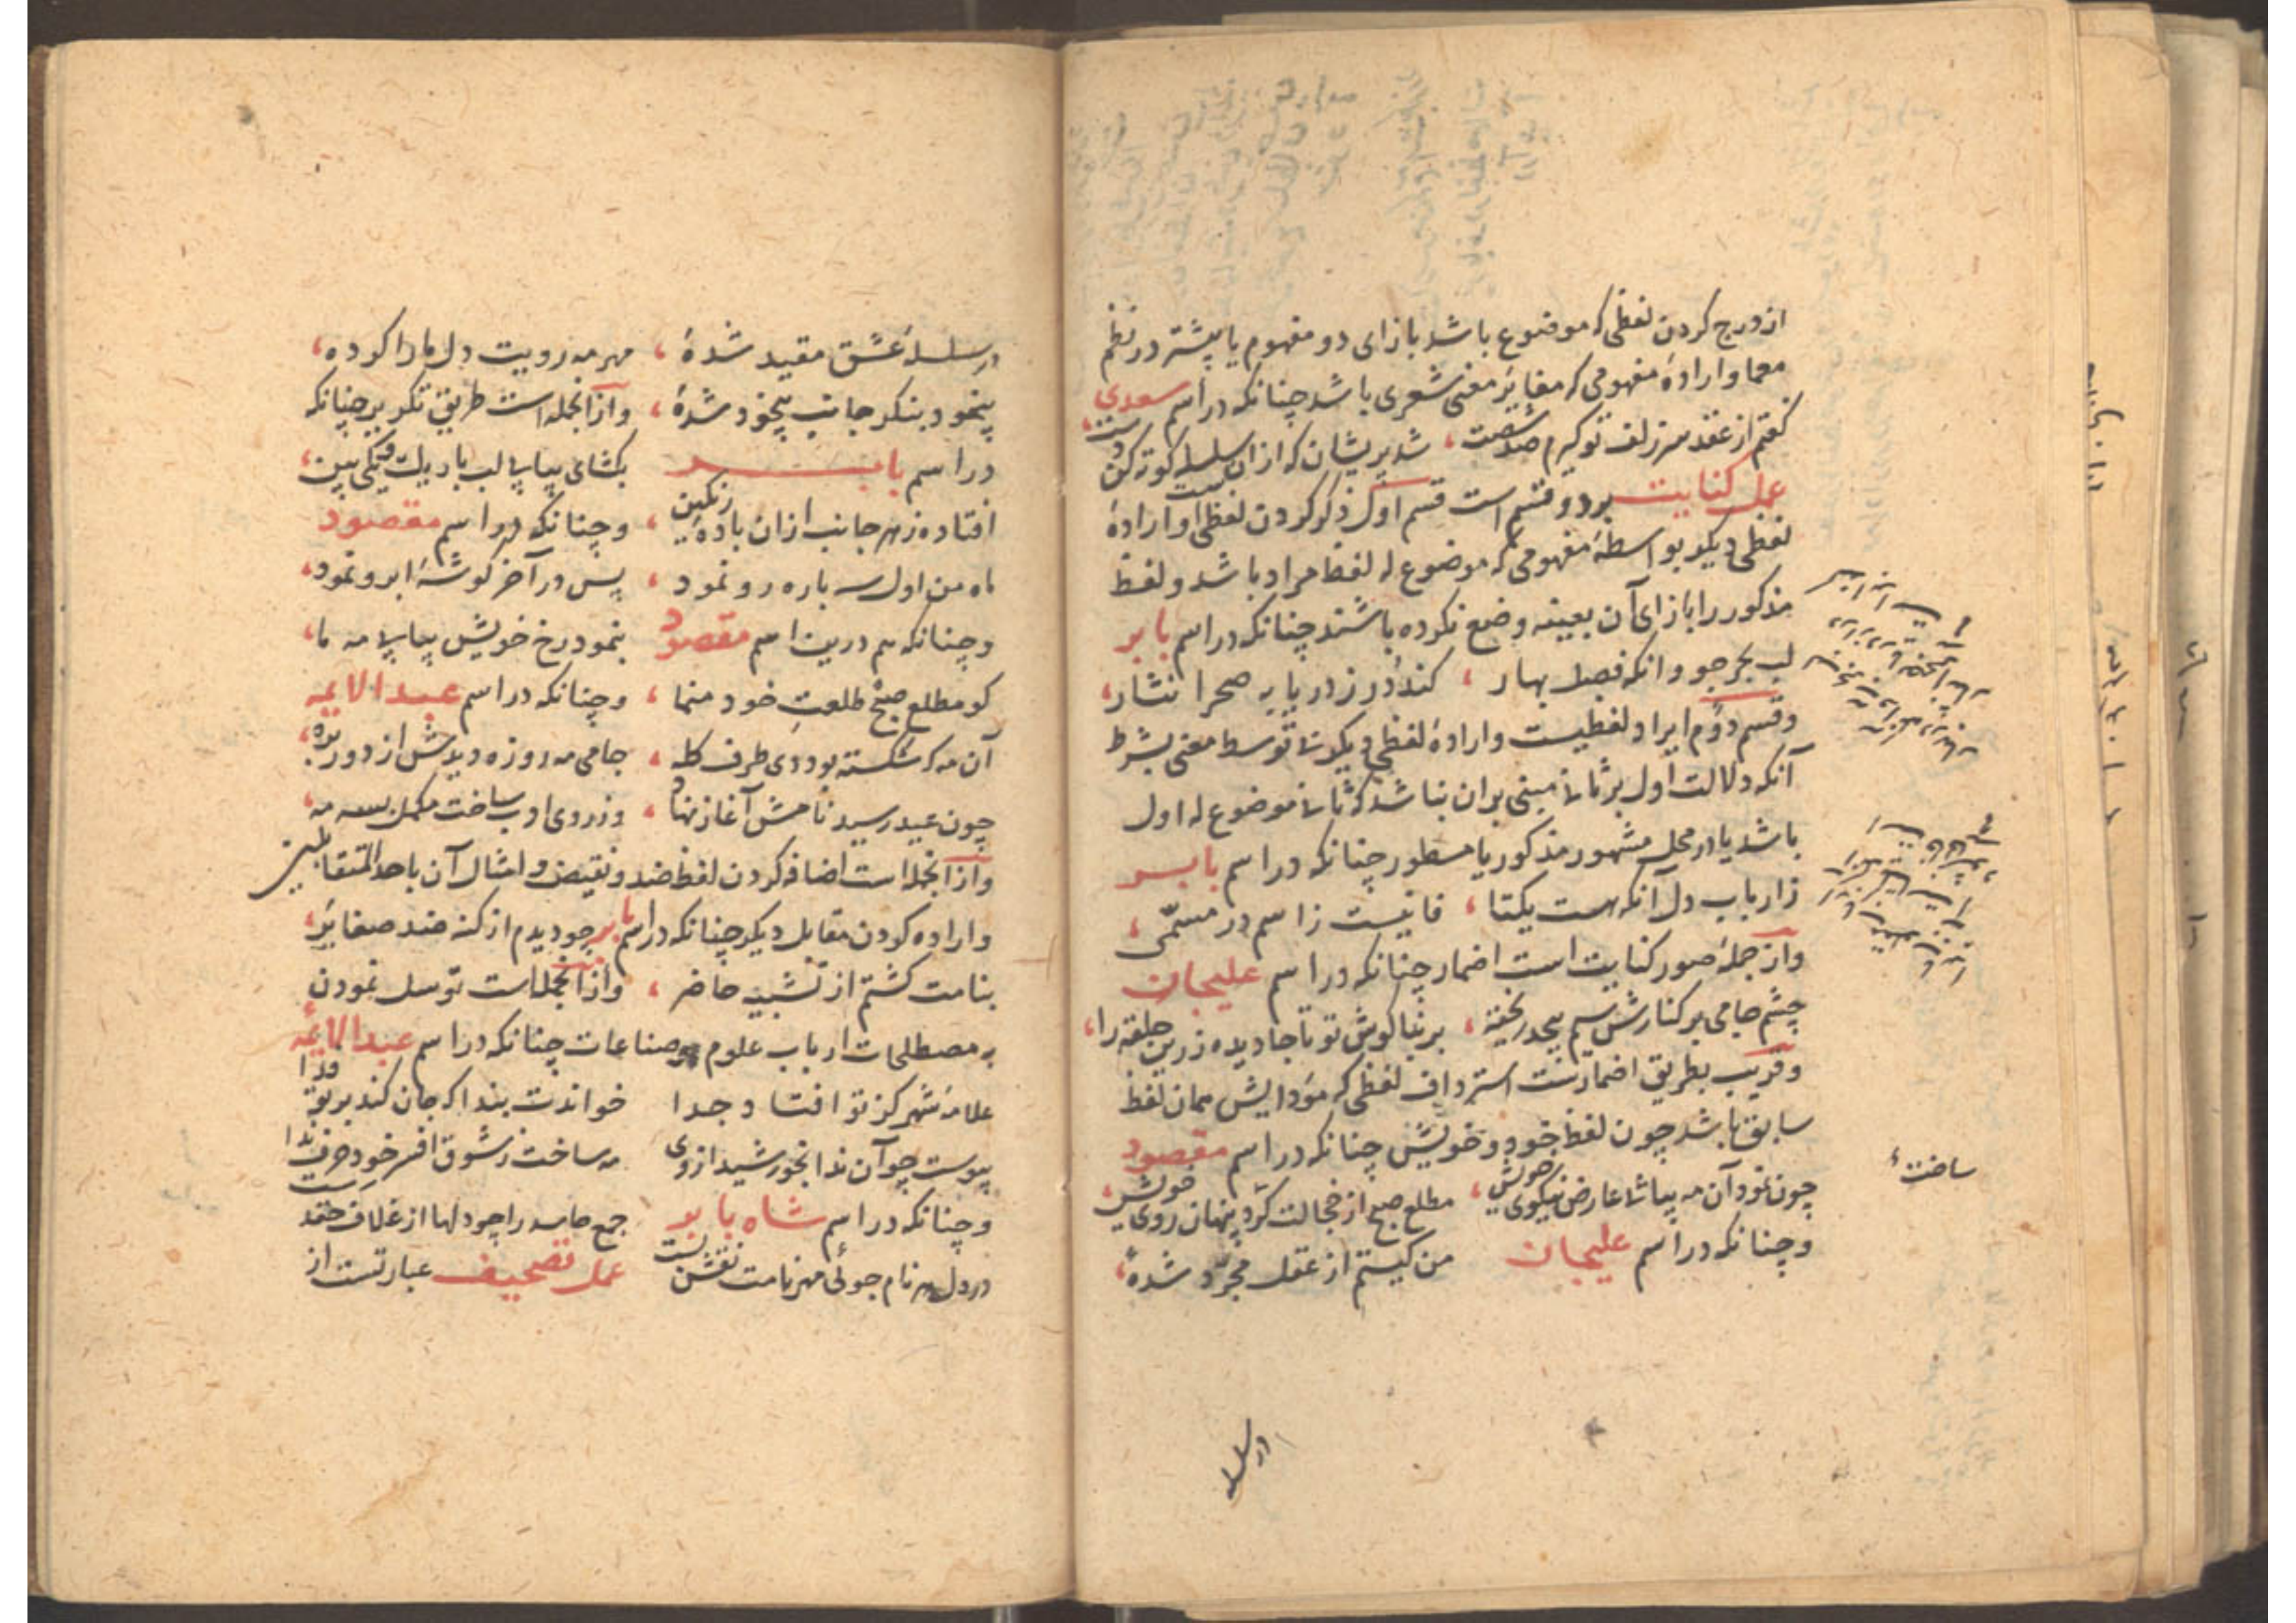 از درج کردن لفظی که موضوع باشد بازای دو مفهوم یا بیشتر در نظم
معما و ارادهٔ مفهومی که مغایر معنی شعری باشد چنانکه در اسم سعدی
کفتم از عقد سر زلف تو کیرم صد شصت، شد پریشان که ازان سلسله کوته کن دست،
عمل کنایت بر دو قسم است قسم اول ذکر کردن لفظی است و ارادهٔ
لفظی دیکر بواسطهٔ مفهومی که موضوع له لفظ مراد باشد و لفظ
مذکور را بازای آن بعینه وضع نکرده باشند چنانکه در اسم بابر
لب بحر جو وانکه فصل بهار، کند در ز دریا به صحرا نثار،
و قسم دوم ایراد لفظیست و ارادهٔ لفظی دیکر نه توسط معنی بشرط
آنکه دلالت اول بر ثانی مبنی بران نباشد که ثانی موضوع له اول
باشد یا در محل مشهور مذکور یا مسطور چنانکه در اسم بابر
ز ارباب دل آنکه هست یکتا، فانیست ز اسم در مسمّی،
و از جملهٔ صور کنایت است اضمار چنانکه در اسم علیجان
چشم جامی بر کنارش سیم بیحد ریخته، بر بناکوش تو تا جا دیده زرین حلقه را،
و قریب بطریق اضمارست استرداف لفظی که مودایش همان لفظ
سابق باشد چون لفظ خود و خویش چنانکه در اسم مقصود
چون نمود آن مه پیاپی عارض نیکوی خویش، مطلع صبح از خجالت کرد پنهان روی خویش،
و چنانکه در اسم علیجان من کیستم از عقل مجرّد شدهٔ،
ساخت
در سلسله
در سلسلهٔ عشق مقید شدهٔ، مهر مه رویت دل ما را کرده،
بیخود بنکر جانب بیخود شدهٔ، و از انجمله است طریق تکریر چنانکه
در اسم بابر بکشای پیاپی لب با ریک یکی بین،
افتاده ز هر جانب ازان بادهٔ رنکین، و چنانکه در اسم مقصود
ماه من اول سه باره رو نمود، پس در آخر کوشهٔ ابرو نمود،
و چنانکه هم درین اسم مقصود بنمود رخ خویش پیاپی مه ما،
کو مطلع صبح طلعت خود منما، و چنانکه در اسم عبد الائمه
آن مه که شکسته بود دی طرف کله، جامی مه روزه دیدش از دور بره،
چون عید رسید نامش آغاز نهاد، وز روی او ساخت مکمل بسه مه،
و از انجمله است اضافه کردن لفظ ضد و نقیض و امثال آن باحد المتقابلین
و اراده کردن مقابل دیکر چنانکه در اسم بابر چو دیدم از کنه ضد مغایر،
بنامت کشتم از تشبیه حاضر، و از انجمله است توسل نمودن
به مصطلحات ارباب علوم و صناعات چنانکه در اسم عبد الائمه
علامهٔ شهر کز تو افتاد جدا خواندت بندا که جان کند بر تو فدا
پیوست چو آن ندا بخورشید از وی مه ساخت ز شوق افسر خود حرف ندا
و چنانکه در اسم شاه بابر جمع حاسد را چو دلها از غلاف حقد رست
در دل هر نام جوئی مهر نامت نقش بست عمل تصحیف عبارتست از